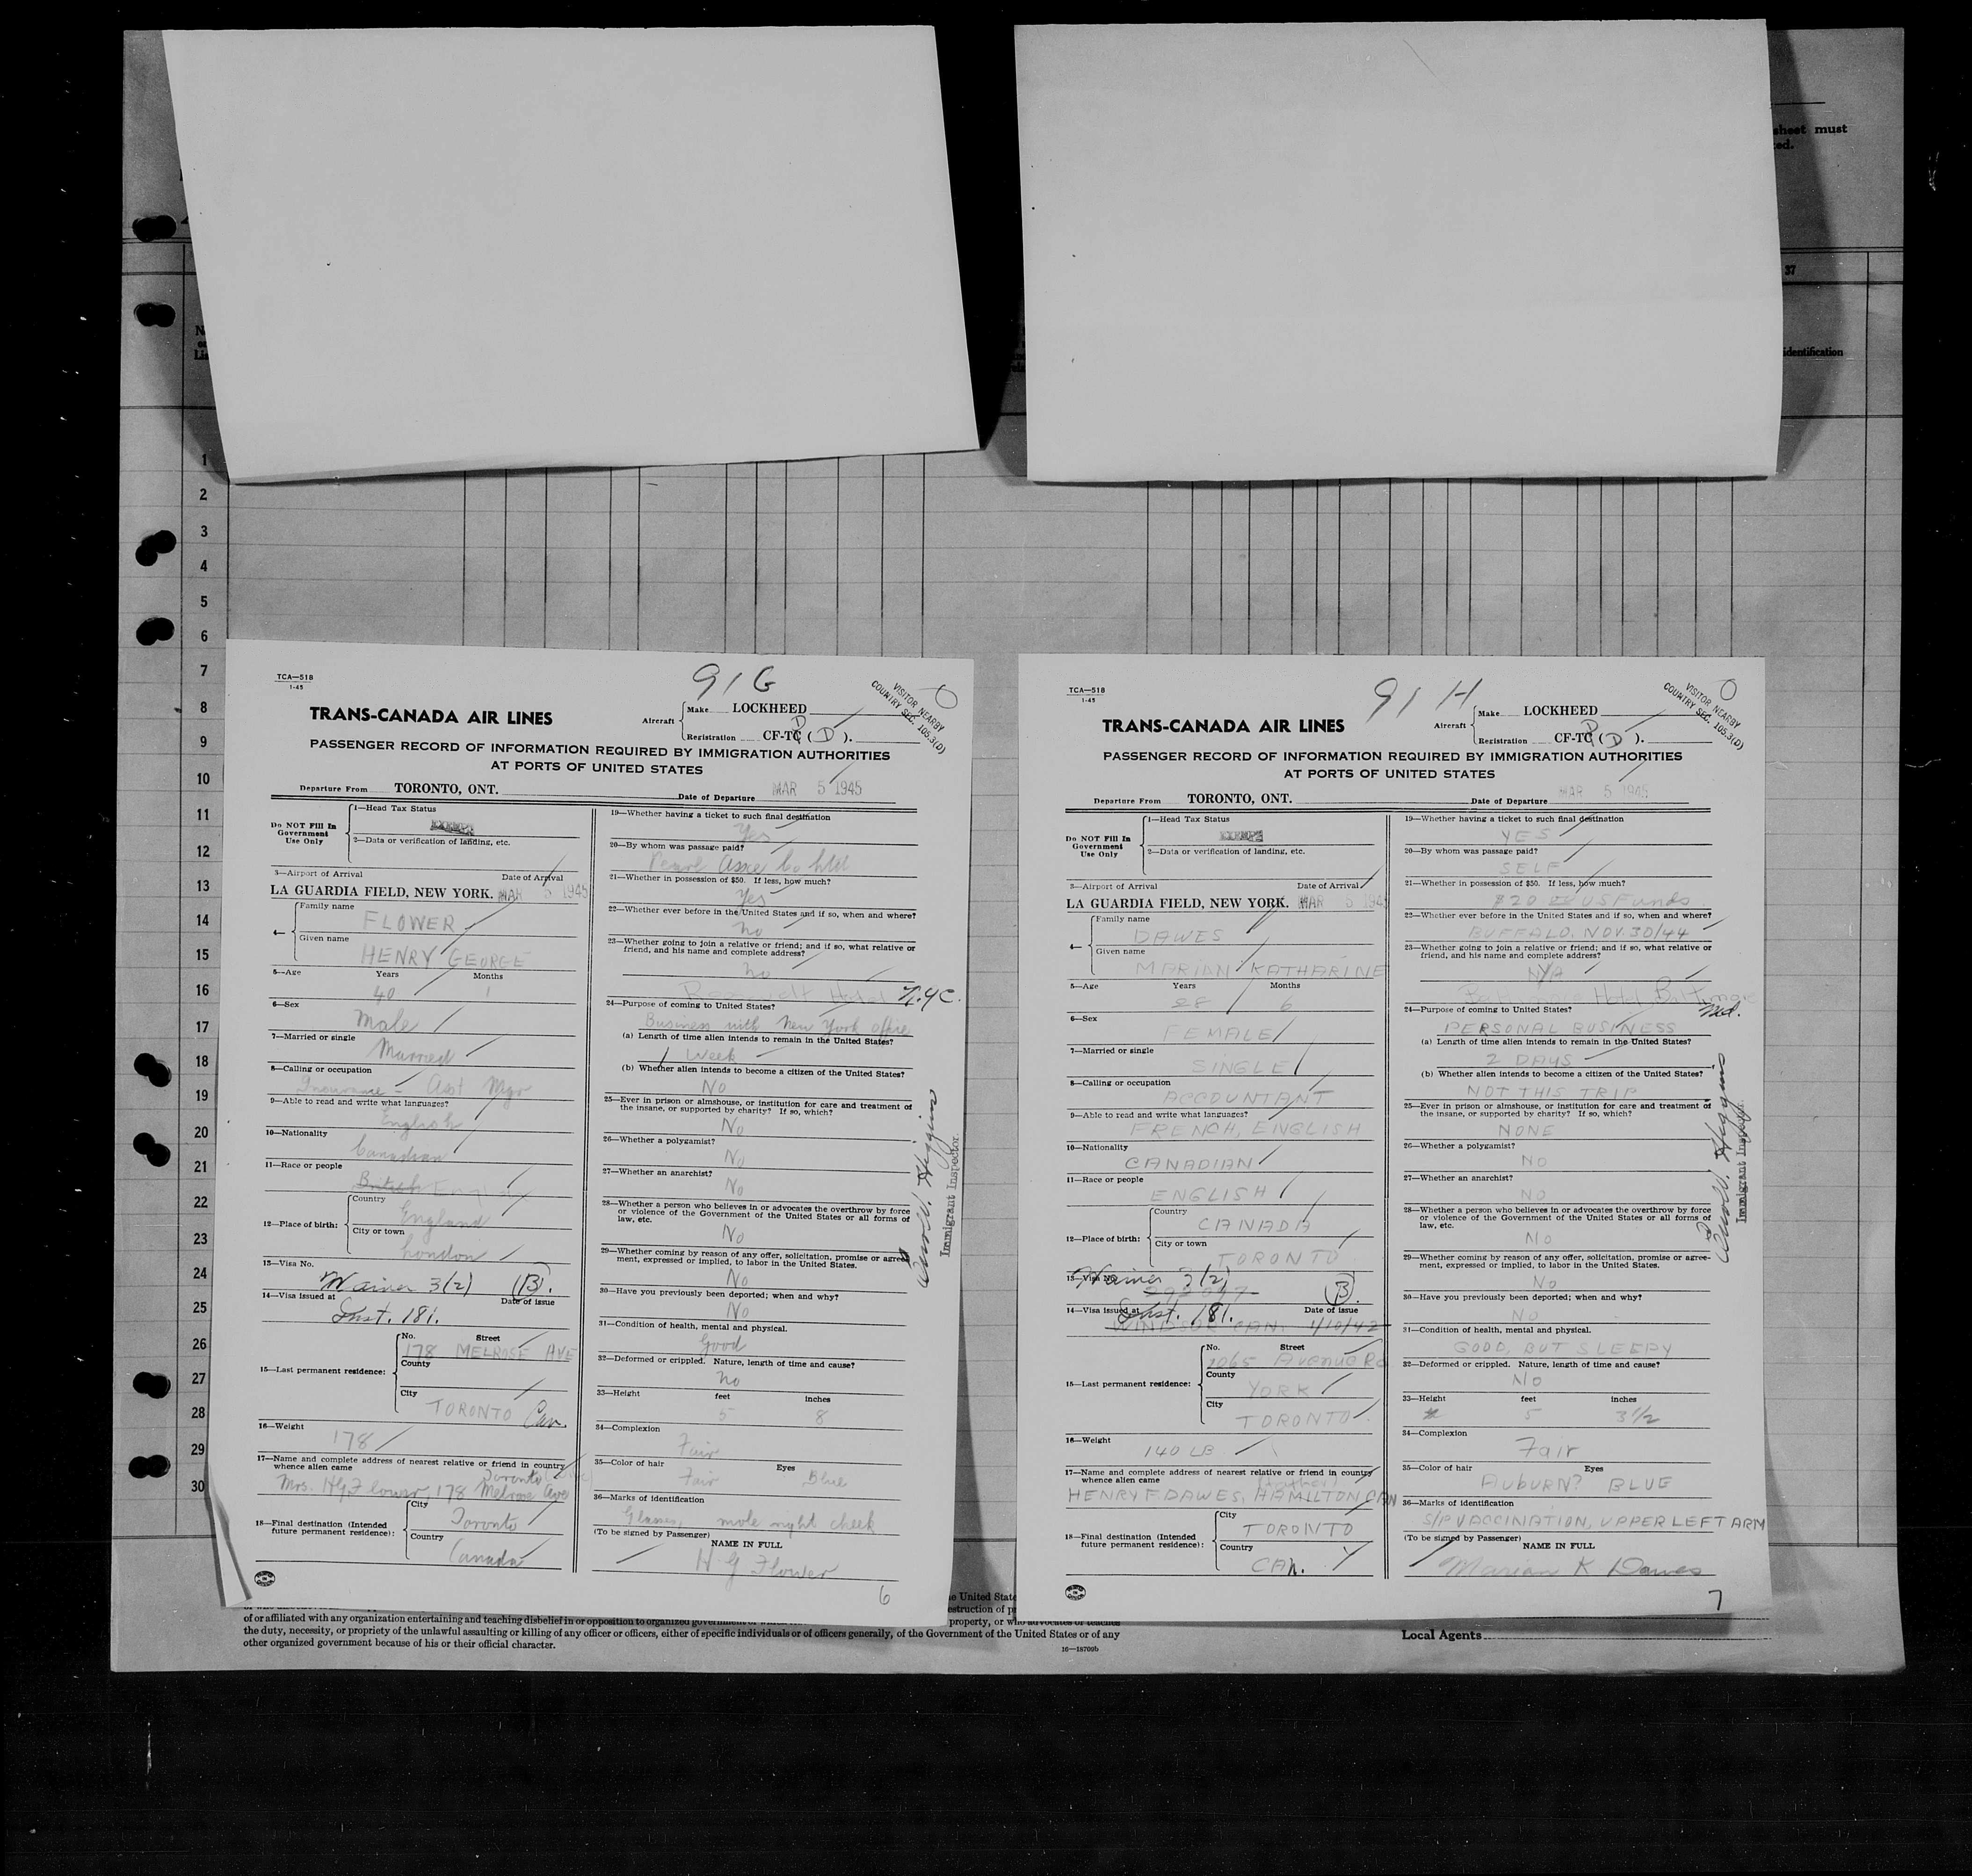 sheet must
ted.
37
identification
1
2
3
4
5
6
7
8
9
10
11
12
13
14
15
16
17
18
19
20
21
22
23
24
25
26
27
28
29
30
TCA—518
1-45
91G
VISITOR NEARBY
COUNTRY SEC. 105.3(D)
TRANS-CANADA AIR LINES
Aircraft
Make LOCKHEED
Registration CF-TC (D).
PASSENGER RECORD OF INFORMATION REQUIRED BY IMMIGRATION AUTHORITIES
AT PORTS OF UNITED STATES
Departure From TORONTO, ONT. Date of Departure MAR 5 1945
Do NOT Fill In
Government
Use Only
1—Head Tax Status
EXEMPT
2—Data or verification of landing, etc.
3—Airport of Arrival Date of Arrival
LA GUARDIA FIELD, NEW YORK. MAR 5 1945
4—
Family name
FLOWER
Given name
HENRY GEORGE
5—Age Years Months
40 1
6—Sex
Male
7—Married or single
Married
8—Calling or occupation
Insurance - Asst Mgr
9—Able to read and write what languages?
English
10—Nationality
Canadian
11—Race or people
British
12—Place of birth:
Country
England
City or town
London
13—Visa No.
Waiver 3(2) (B).
14—Visa issued at Date of issue
Inst. 181.
15—Last permanent residence:
No. Street
178 MELROSE AVE
County
City
TORONTO Can.
16—Weight
178
17—Name and complete address of nearest relative or friend in country
whence alien came
Toronto
Mrs. HG Flower, 178 Melrose Ave
18—Final destination (Intended
future permanent residence):
City
Toronto
Country
Canada
19—Whether having a ticket to such final destination
Yes
20—By whom was passage paid?
Pearl Assce Co Ltd
21—Whether in possession of $50. If less, how much?
Yes
22—Whether ever before in the United States and if so, when and where?
No
23—Whether going to join a relative or friend; and if so, what relative or
friend, and his name and complete address?
No
Roosevelt Hotel N.Y.C.
24—Purpose of coming to United States?
Business with New York office
(a) Length of time alien intends to remain in the United States?
1 Week
(b) Whether alien intends to become a citizen of the United States?
No
25—Ever in prison or almshouse, or institution for care and treatment of
the insane, or supported by charity? If so, which?
No
26—Whether a polygamist?
No
27—Whether an anarchist?
No
28—Whether a person who believes in or advocates the overthrow by force
or violence of the Government of the United States or all forms of
law, etc.
No
29—Whether coming by reason of any offer, solicitation, promise or agree-
ment, expressed or implied, to labor in the United States.
No
30—Have you previously been deported; when and why?
No
31—Condition of health, mental and physical.
Good
32—Deformed or crippled. Nature, length of time and cause?
No
33—Height feet inches
5 8
34—Complexion
Fair
35—Color of hair Eyes
Fair Blue
36—Marks of identification
Glasses, mole right cheek
(To be signed by Passenger)
NAME IN FULL
H G Flower
6
Higgins
Immigrant Inspector.
TCA—518
1-45
91 H
VISITOR NEARBY
COUNTRY SEC. 105.3(D)
TRANS-CANADA AIR LINES
Aircraft
Make LOCKHEED
Registration CF-TC (D).
PASSENGER RECORD OF INFORMATION REQUIRED BY IMMIGRATION AUTHORITIES
AT PORTS OF UNITED STATES
Departure From TORONTO, ONT. Date of Departure MAR 5 1945
Do NOT Fill In
Government
Use Only
1—Head Tax Status
EXEMPT
2—Data or verification of landing, etc.
3—Airport of Arrival Date of Arrival
LA GUARDIA FIELD, NEW YORK. MAR 5 1945
4—
Family name
DAWES
Given name
MARIAN KATHARINE
5—Age Years Months
28 6
6—Sex
FEMALE
7—Married or single
SINGLE
8—Calling or occupation
ACCOUNTANT
9—Able to read and write what languages?
FRENCH, ENGLISH
10—Nationality
CANADIAN
11—Race or people
ENGLISH
12—Place of birth:
Country
CANADA
City or town
TORONTO
13—Visa No.
Waiver 3(2) (B)
14—Visa issued at Date of issue
Inst. 181.
WINDSOR CAN. 1/10/42
15—Last permanent residence:
No. Street
Avenue Rd
County
YORK
City
TORONTO
16—Weight
140 LB
17—Name and complete address of nearest relative or friend in country
whence alien came
HENRY F DAWES, HAMILTON CAN
18—Final destination (Intended
future permanent residence):
City
TORONTO
Country
CAN.
19—Whether having a ticket to such final destination
YES
20—By whom was passage paid?
SELF
21—Whether in possession of $50. If less, how much?
$20 US Funds
22—Whether ever before in the United States and if so, when and where?
BUFFALO, NOV. 30/44
23—Whether going to join a relative or friend; and if so, what relative or
friend, and his name and complete address?
N/A
Hotel, Baltimore Md.
24—Purpose of coming to United States?
PERSONAL BUSINESS
(a) Length of time alien intends to remain in the United States?
2 DAYS
(b) Whether alien intends to become a citizen of the United States?
NOT THIS TRIP
25—Ever in prison or almshouse, or institution for care and treatment of
the insane, or supported by charity? If so, which?
NONE
26—Whether a polygamist?
NO
27—Whether an anarchist?
NO
28—Whether a person who believes in or advocates the overthrow by force
or violence of the Government of the United States or all forms of
law, etc.
NO
29—Whether coming by reason of any offer, solicitation, promise or agree-
ment, expressed or implied, to labor in the United States.
NO
30—Have you previously been deported; when and why?
NO
31—Condition of health, mental and physical.
GOOD, BUT SLEEPY
32—Deformed or crippled. Nature, length of time and cause?
NO
33—Height feet inches
5 3½
34—Complexion
Fair
35—Color of hair Eyes
AUBURN? BLUE
36—Marks of identification
S/P VACCINATION, UPPER LEFT ARM
(To be signed by Passenger)
NAME IN FULL
Marian K Dawes
7
Higgins
Immigrant Inspector.
of or affiliated with any organization entertaining and teaching disbelief in or opposition to organized government property, or who advocates or teaches
the duty, necessity, or propriety of the unlawful assaulting or killing of any officer or officers, either of specific individuals or of officers generally, of the Government of the United States or of any
other organized government because of his or their official character.
16—18709b
Local Agents